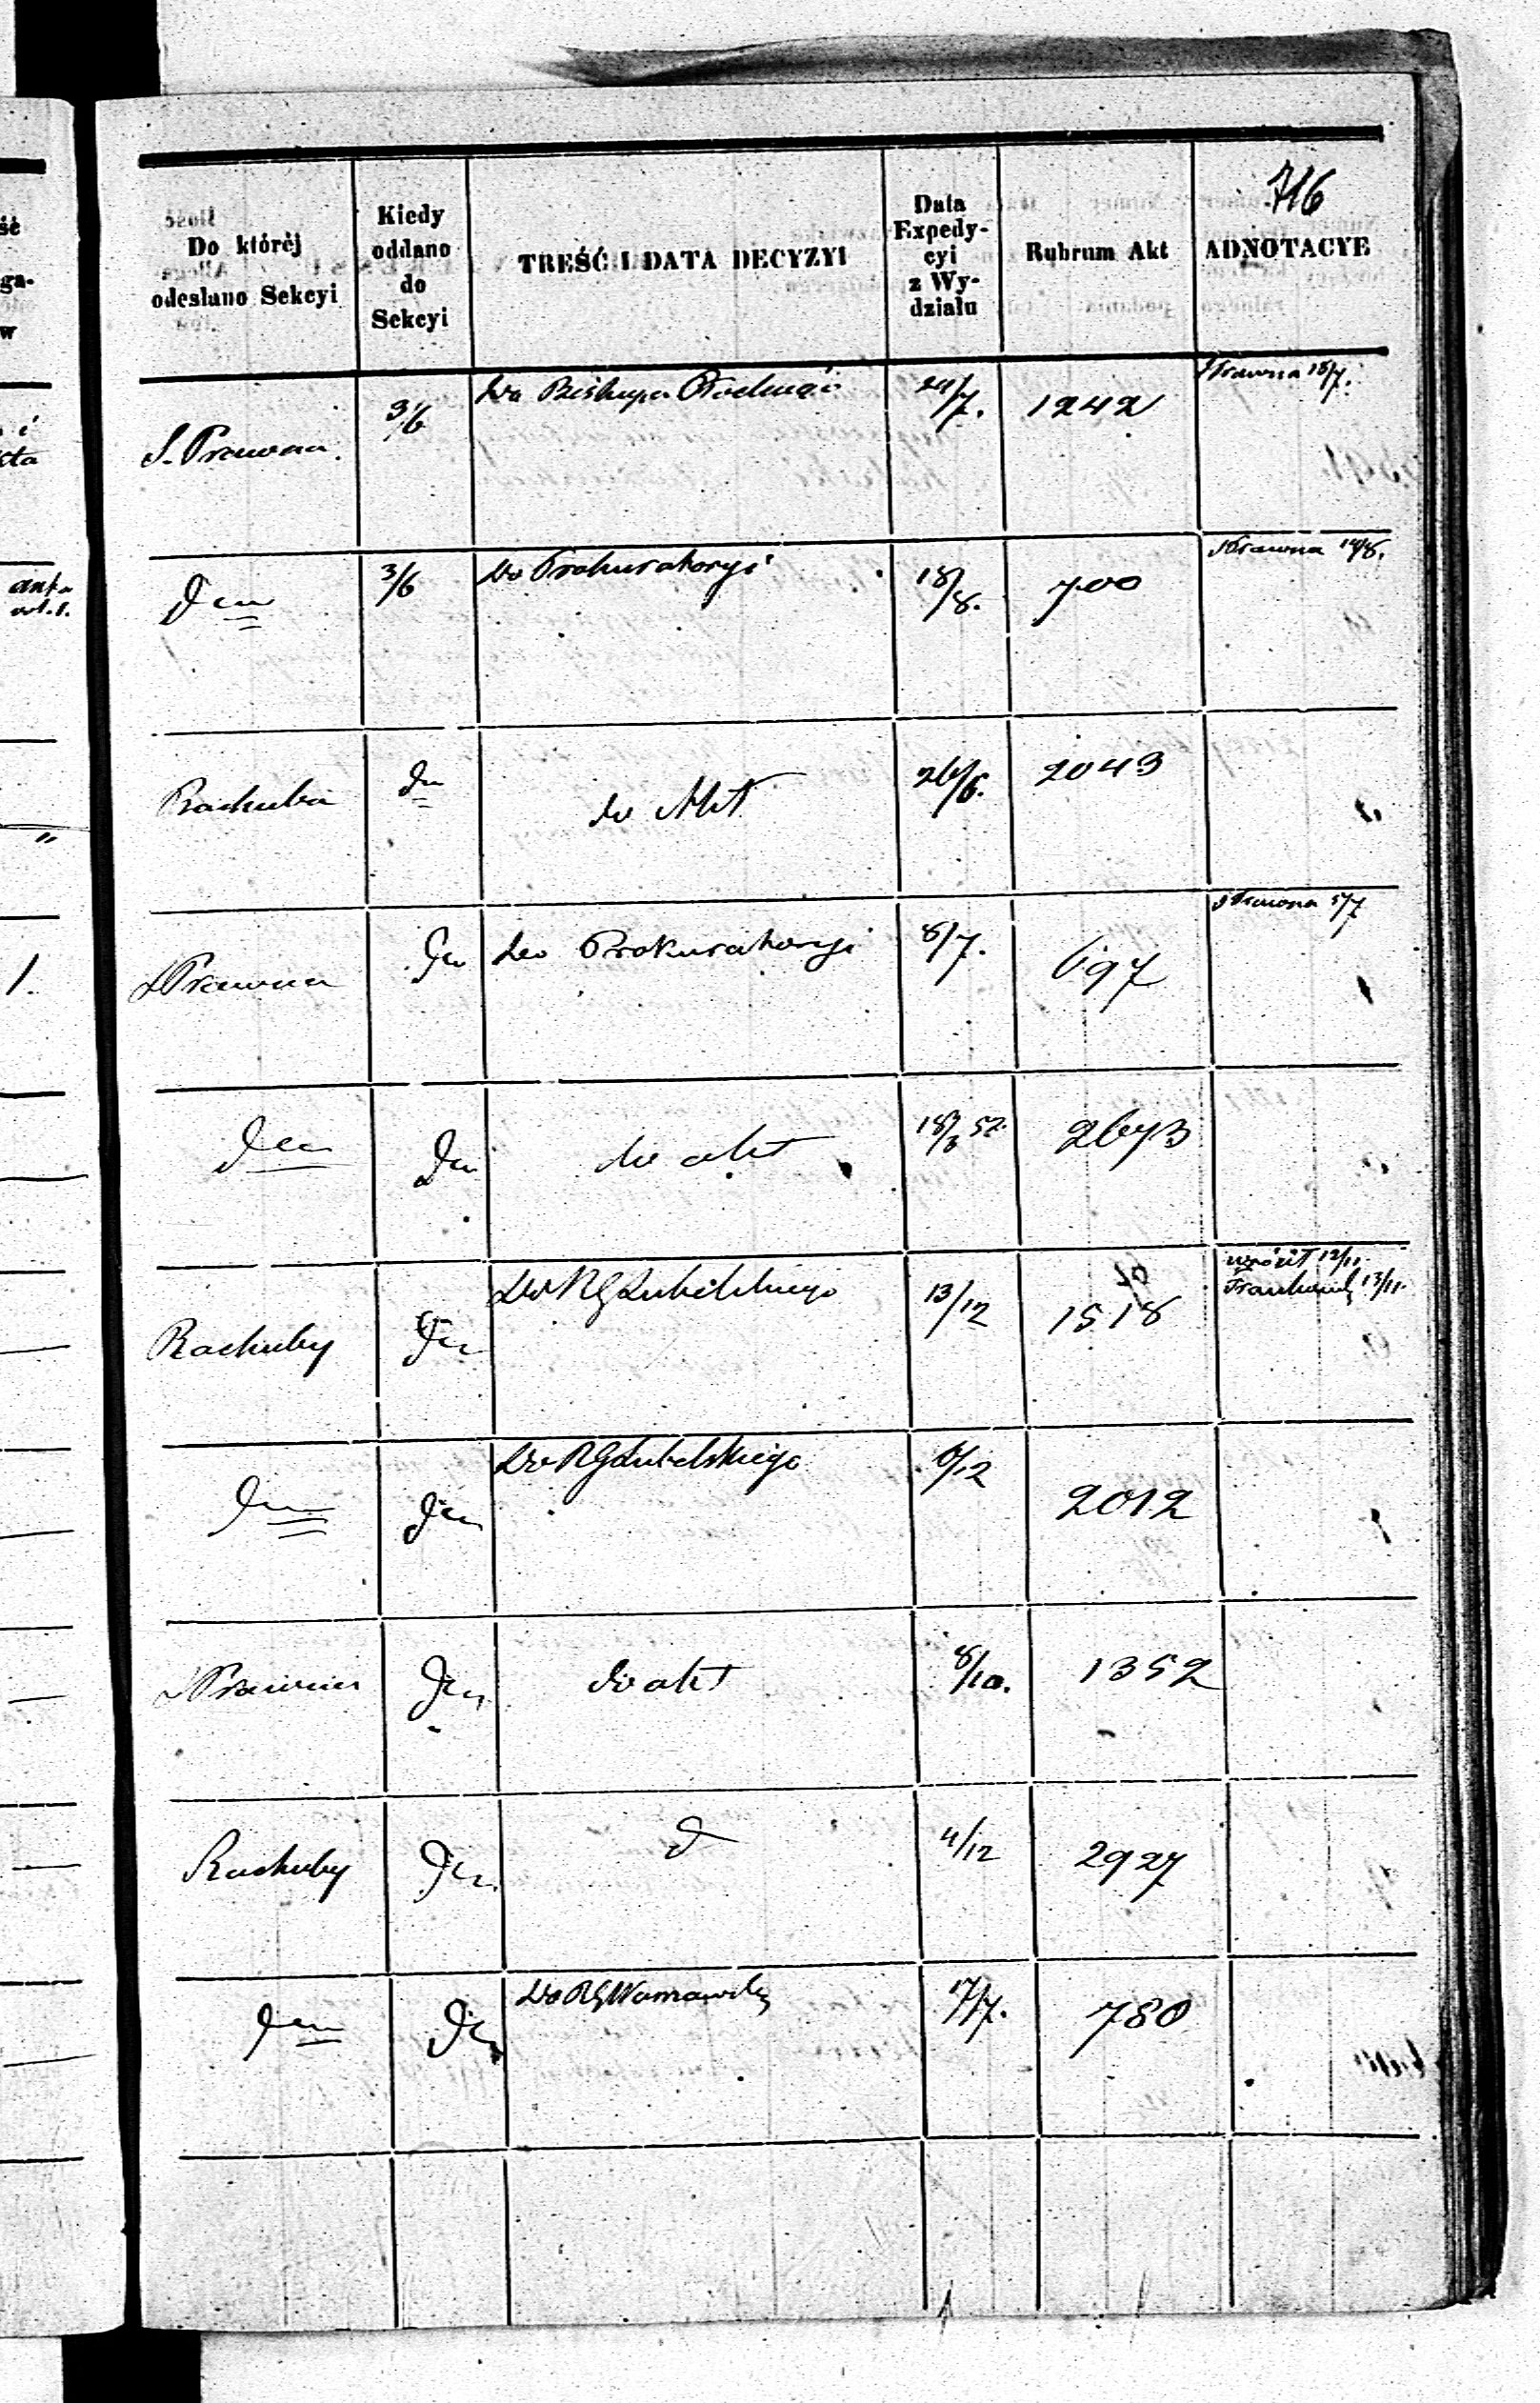 716
Do któréj odesłano Sekcyi | Kiedy oddano do Sekcyi | TREŚĆ I DATA DECYZYI | Data Expedycyi z Wydziału | Rubrum Akt | ADNOTACYE
S. Prawna. | 3/6 | Do Biskupa | 24/7. | 1242 | Prawna 18/7.
Dto | 3/6 | Do Prokuratoryi | 18/8. | 700 | Prawna 14/8.
Rachuba | Dto | do Akt | 26/6. | 2043
S Prawna | Dto | do Prokuratoryi | 8/7. | 697 | S Prawna 5/7
Dto | Dto | do akt | 57. | 2673
Rachuby | Dto | Do RG Lubelskiego | 13/12 | 1518 | wrócił 12/11. 13/11.
Dto | Dto | Do RG Lubelskiego | 6/12 | 2012
S Prawna | Dto | do akt | 8/10. | 1352
Rachuby | Dto | d | 4/12 | 2927
Dto | Dto | Do RG | 17/7. | 780